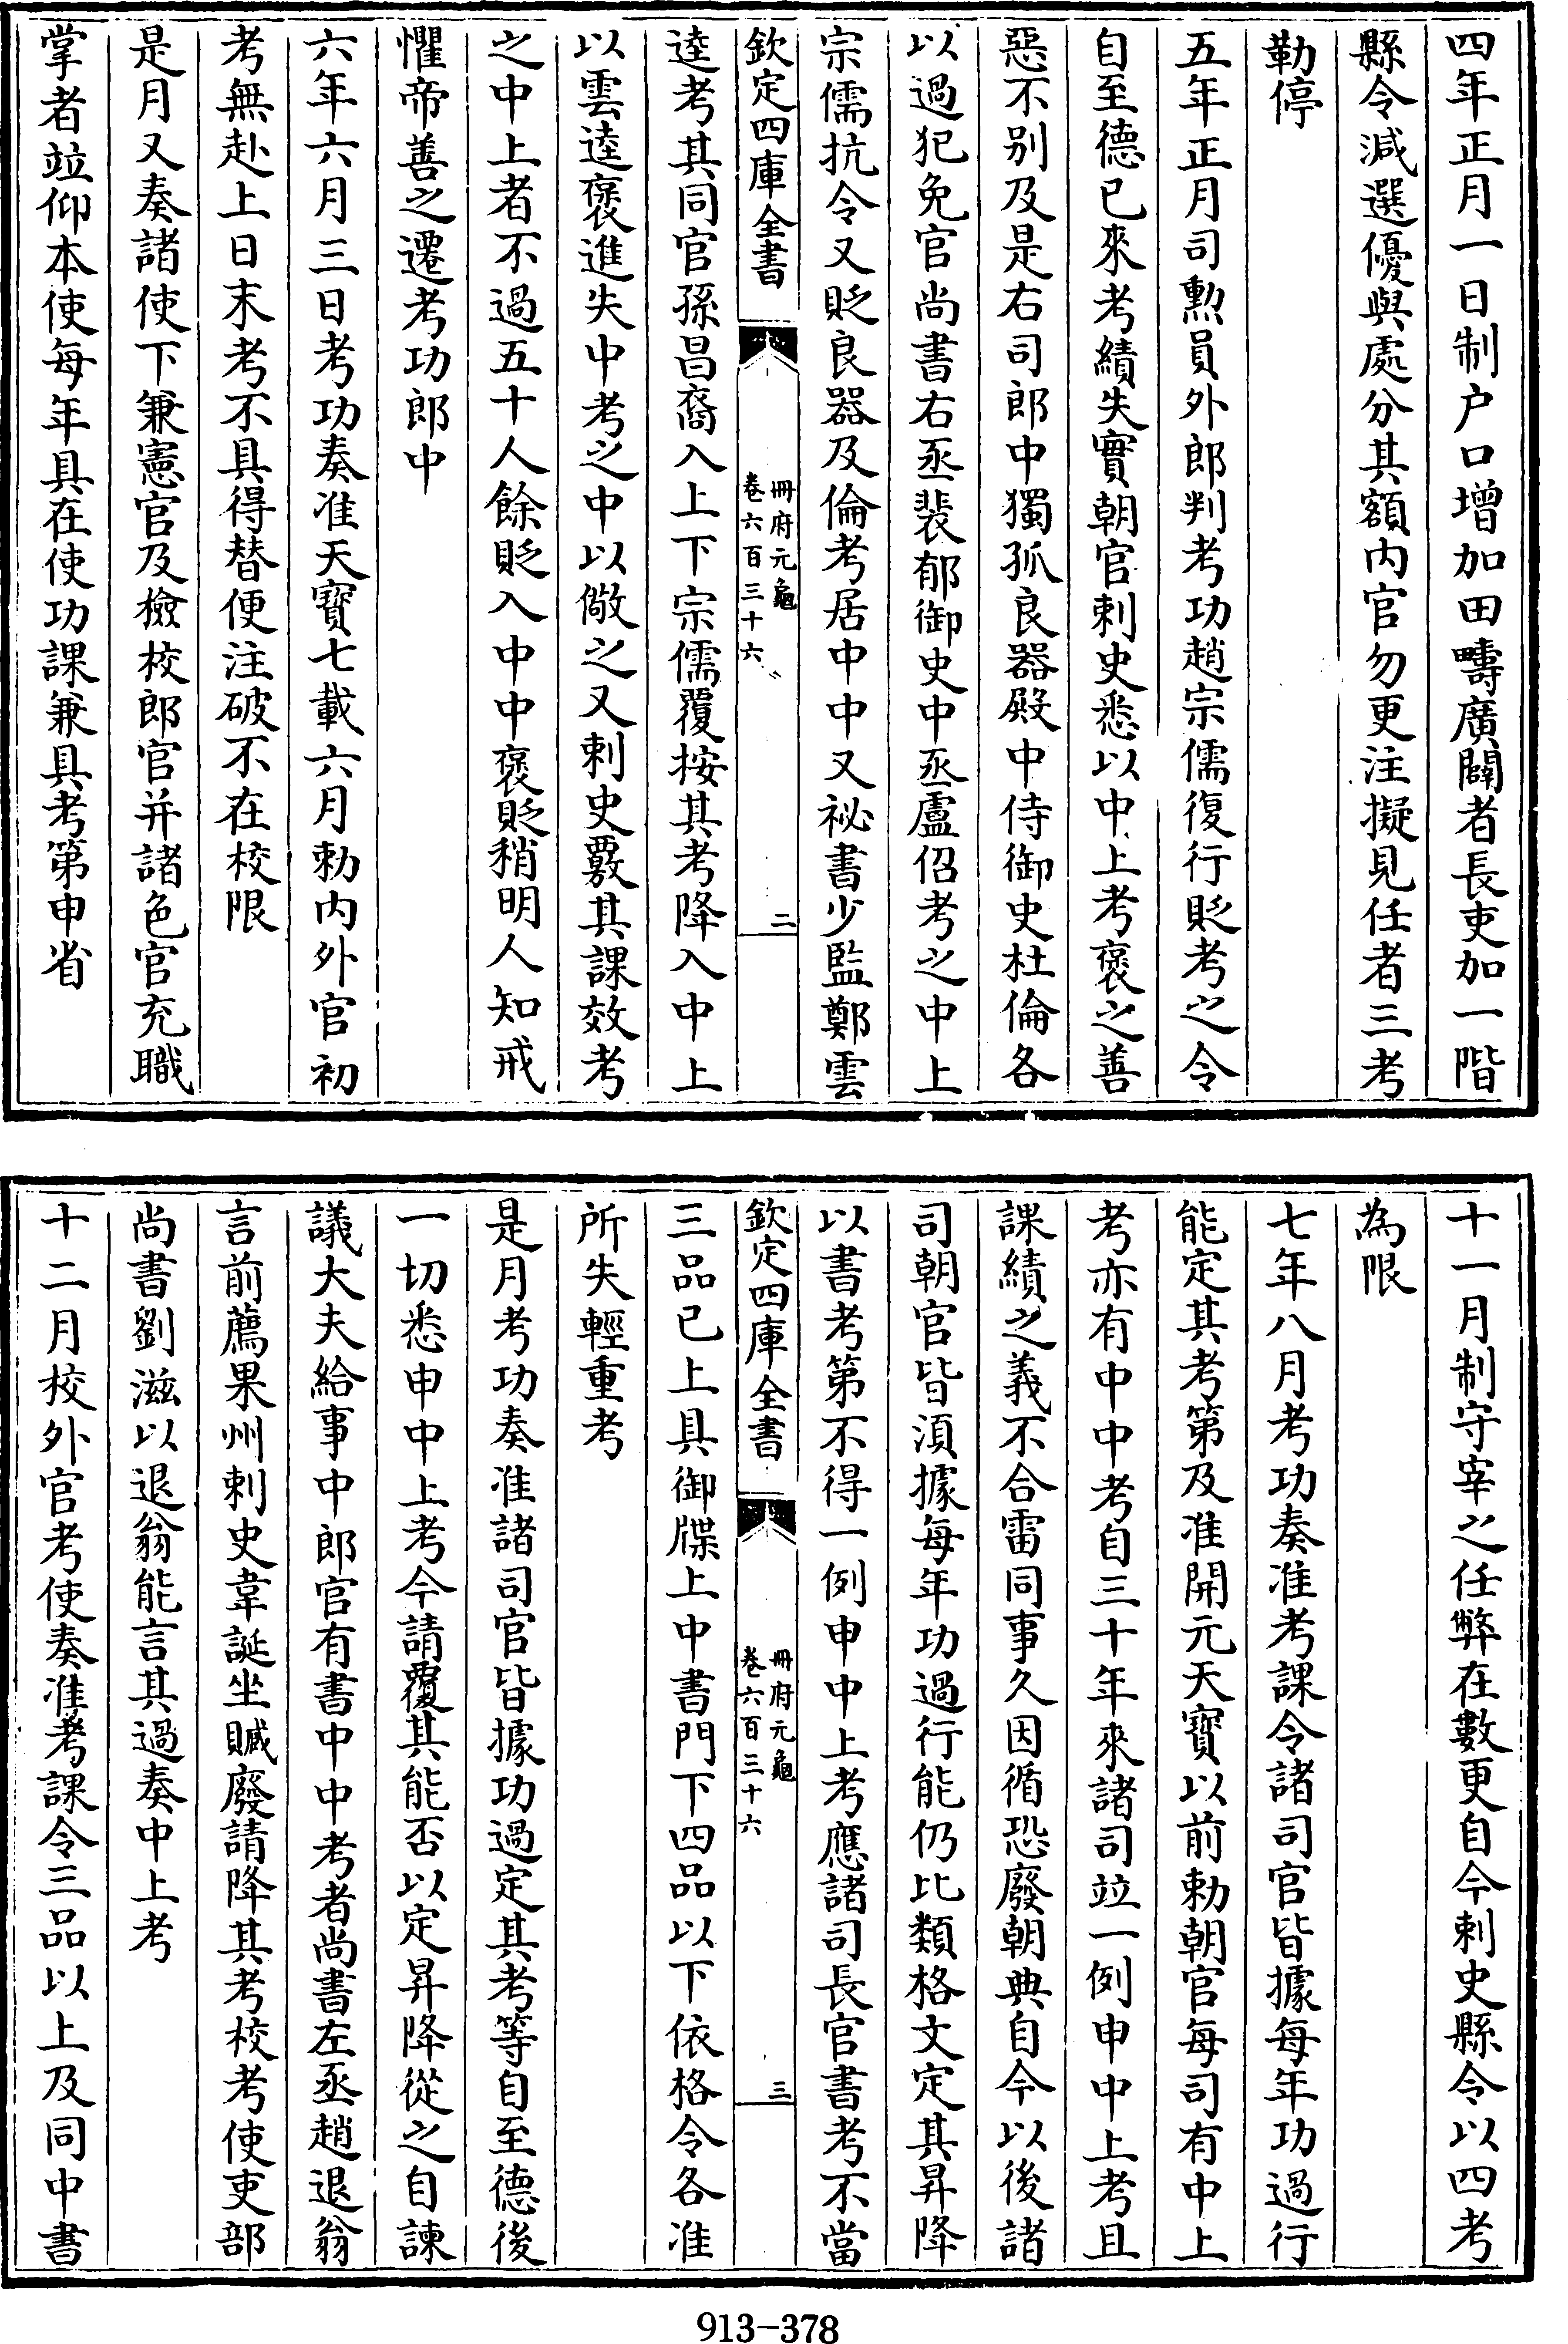 四年正月一日制户口增加田疇廣闢者長吏加一階
縣令減選優與處分其額内官勿更注擬見任者三考
勒停
五年正月司勲員外郎判考功趙宗儒復行貶考之令
自至德已來考績失實朝官刺史悉以中上考褒之善
惡不别及是右司郎中獨孤良器殿中侍御史杜倫各
以過犯免官尚書右丞裴郁御史中丞盧佋考之中上
宗儒抗令又貶良器及倫考居中中又祕書少監鄭雲
欽定四庫全書
冊府元龜
卷六百三十六
二
逵考其同官孫昌裔入上下宗儒覆按其考降入中上
以雲逵褒進失中考之中以儆之又刺史覈其課效考
之中上者不過五十人餘貶入中中褒貶稍明人知戒
懼帝善之遷考功郎中
六年六月三日考功奏准天寳七載六月勅内外官初
考無赴上日末考不具得替便注破不在校限
是月又奏諸使下兼憲官及檢校郎官并諸色官充職
掌者竝仰本使每年具在使功課兼具考第申省
十一月制守宰之任弊在數更自今刺史縣令以四考
為限
七年八月考功奏准考課令諸司官皆據每年功過行
能定其考第及准開元天寳以前勅朝官每司有中上
考亦有中中考自三十年來諸司竝一例申中上考且
課績之義不合雷同事久因循恐廢朝典自今以後諸
司朝官皆湏據每年功過行能仍比類格文定其昇降
以書考第不得一例申中上考應諸司長官書考不當
欽定四庫全書
冊府元龜
卷六百三十六
三
三品已上具御牒上中書門下四品以下依格令各准
所失輕重考
是月考功奏准諸司官皆據功過定其考等自至德後
一切悉申中上考今請覆其能否以定昇降從之自諫
議大夫給事中郎官有書中中考者尚書左丞趙退翁
言前薦果州刺史韋誕坐贓廢請降其考校考使吏部
尚書劉滋以退翁能言其過奏中上考
十二月校外官考使奏准考課令三品以上及同中書
913-378